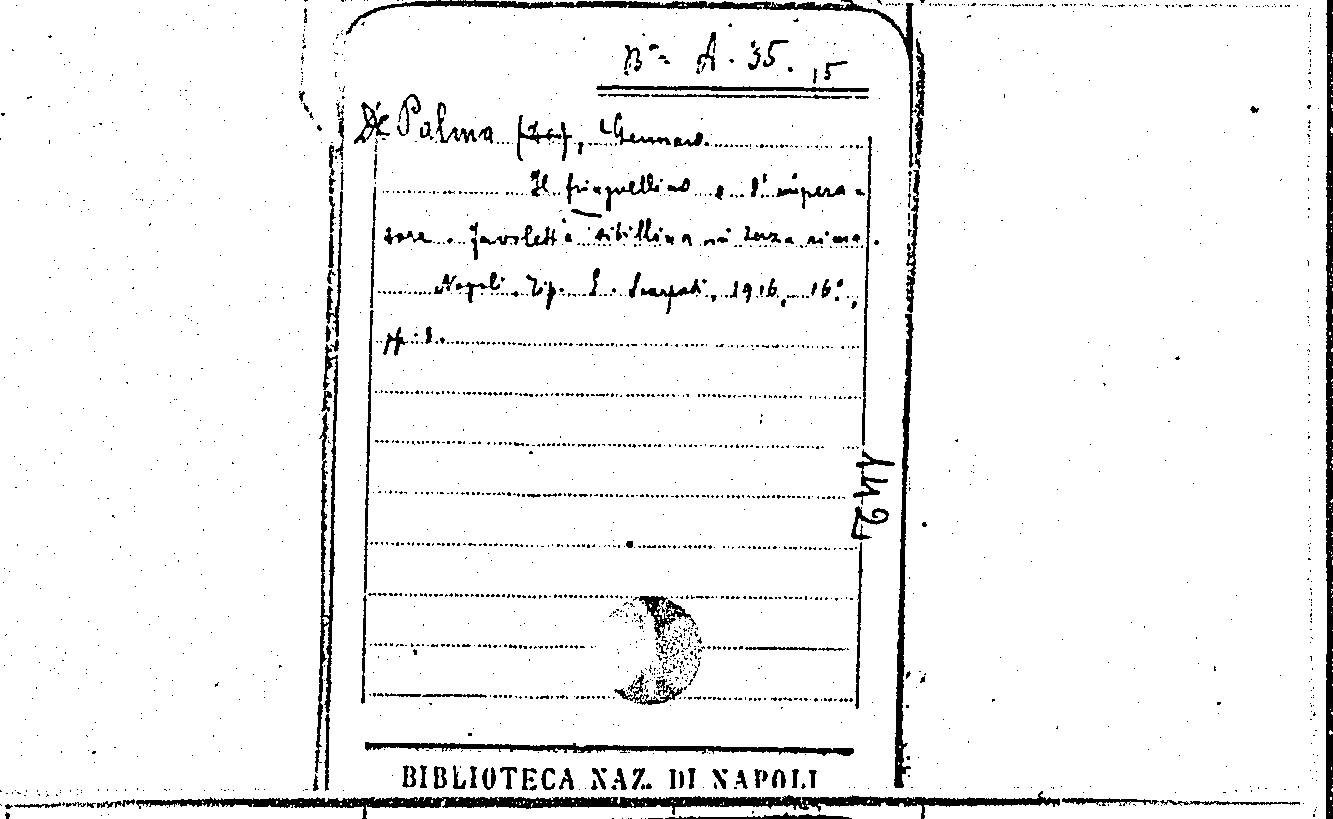 Bª A. 35. 15
De Palma (De), Gennaro.
Il fringuellino e l'impera-
tore. Favoletta sibillina in terza rima.
Napoli. Tip. S. Scarpati, 1916, 16º,
pp. 8.
BIBLIOTECA NAZ. DI NAPOLI